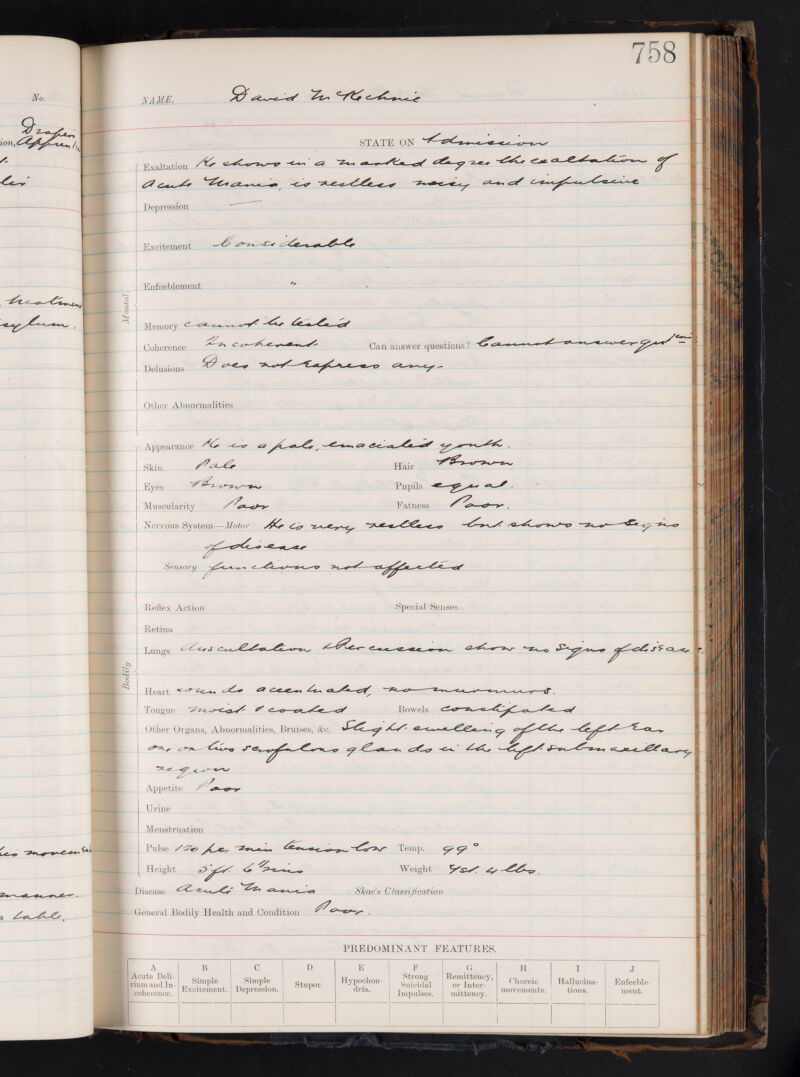 No.
Drapers
ion, Apprentice
treatment
asylum.
his movements
manner.
a table.
758
NAME. David McKechnie
STATE ON Admission
Mental.
Exaltation He shows in a marked degree the exaltation of
Acute Mania, is restless noisy and impulsive
Depression —
Excitement Considerable
Enfeeblement "
Memory cannot be tested
Coherence Incoherent. Can answer questions? Cannot answer questions
Delusions Does not express any.
Other Abnormalities
Bodily
Appearance He is a pale, emaciated youth.
Skin Pale Hair Brown
Eyes Brown Pupils equal.
Muscularity Poor Fatness Poor.
Nervous System—Motor He is very restless but shows no signs
of disease
Sensory functions not affected
Reflex Action Special Senses
Retina
Lungs Auscultation & Percussion show no signs of disease.
Heart sounds accentuated, no murmurs.
Tongue moist & coated Bowels constipated
Other Organs, Abnormalities, Bruises, &c. Slight swelling of the left ear
one or two scrofulous glands in the left submaxillary
region
Appetite Poor
Urine
Menstruation
Pulse 120 per min tension low Temp. 99°
Height 5 ft. 6 ½ ins Weight 7st. 4 lbs.
Disease Acute Mania Skae's Classification
General Bodily Health and Condition Poor.
PREDOMINANT FEATURES.
A B C D E F G H I J
Acute Deli-rium and In-coherence. Simple Excitement. Simple Depression. Stupor. Hypochon-dria. Strong Suicidal Impulses. Remittency, or Inter-mittency. Choreic movements. Hallucina-tions. Enfeeble-ment.